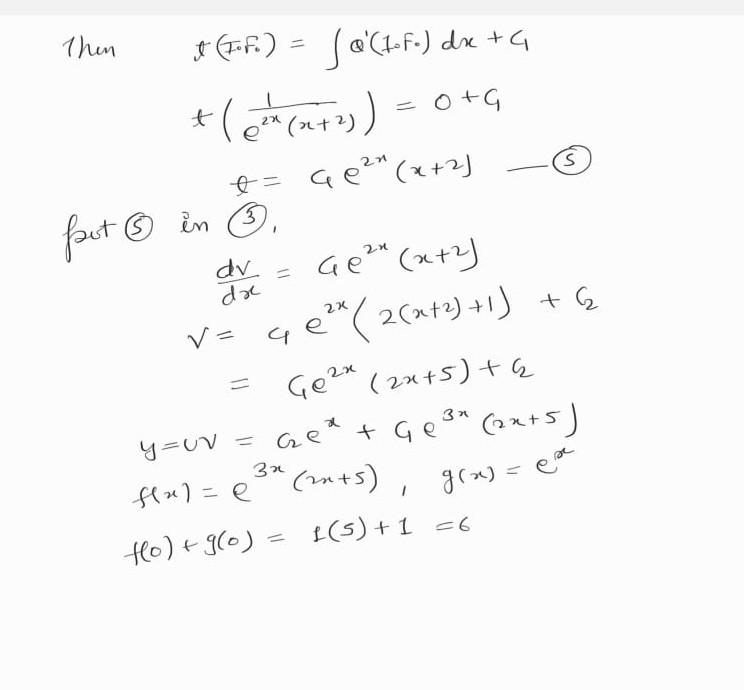 Then t(I.F.) = ∫Q'(I.F.) dx + C₁
t(1/(e^{2x}(x+2))) = 0 + C₁
t = C₁e^{2x}(x+2) —⑤
put ⑤ in ③,
dv/dx = C₁e^{2x}(x+2)
V = C₁e^{2x}(2(x+2)+1) + C₂
= C₁e^{2x}(2x+5) + C₂
y=UV = C₂e^x + C₁e^{3x}(2x+5)
f(x) = e^{3x}(2x+5), g(x) = e^x
f(0) + g(0) = 1(5) + 1 = 6